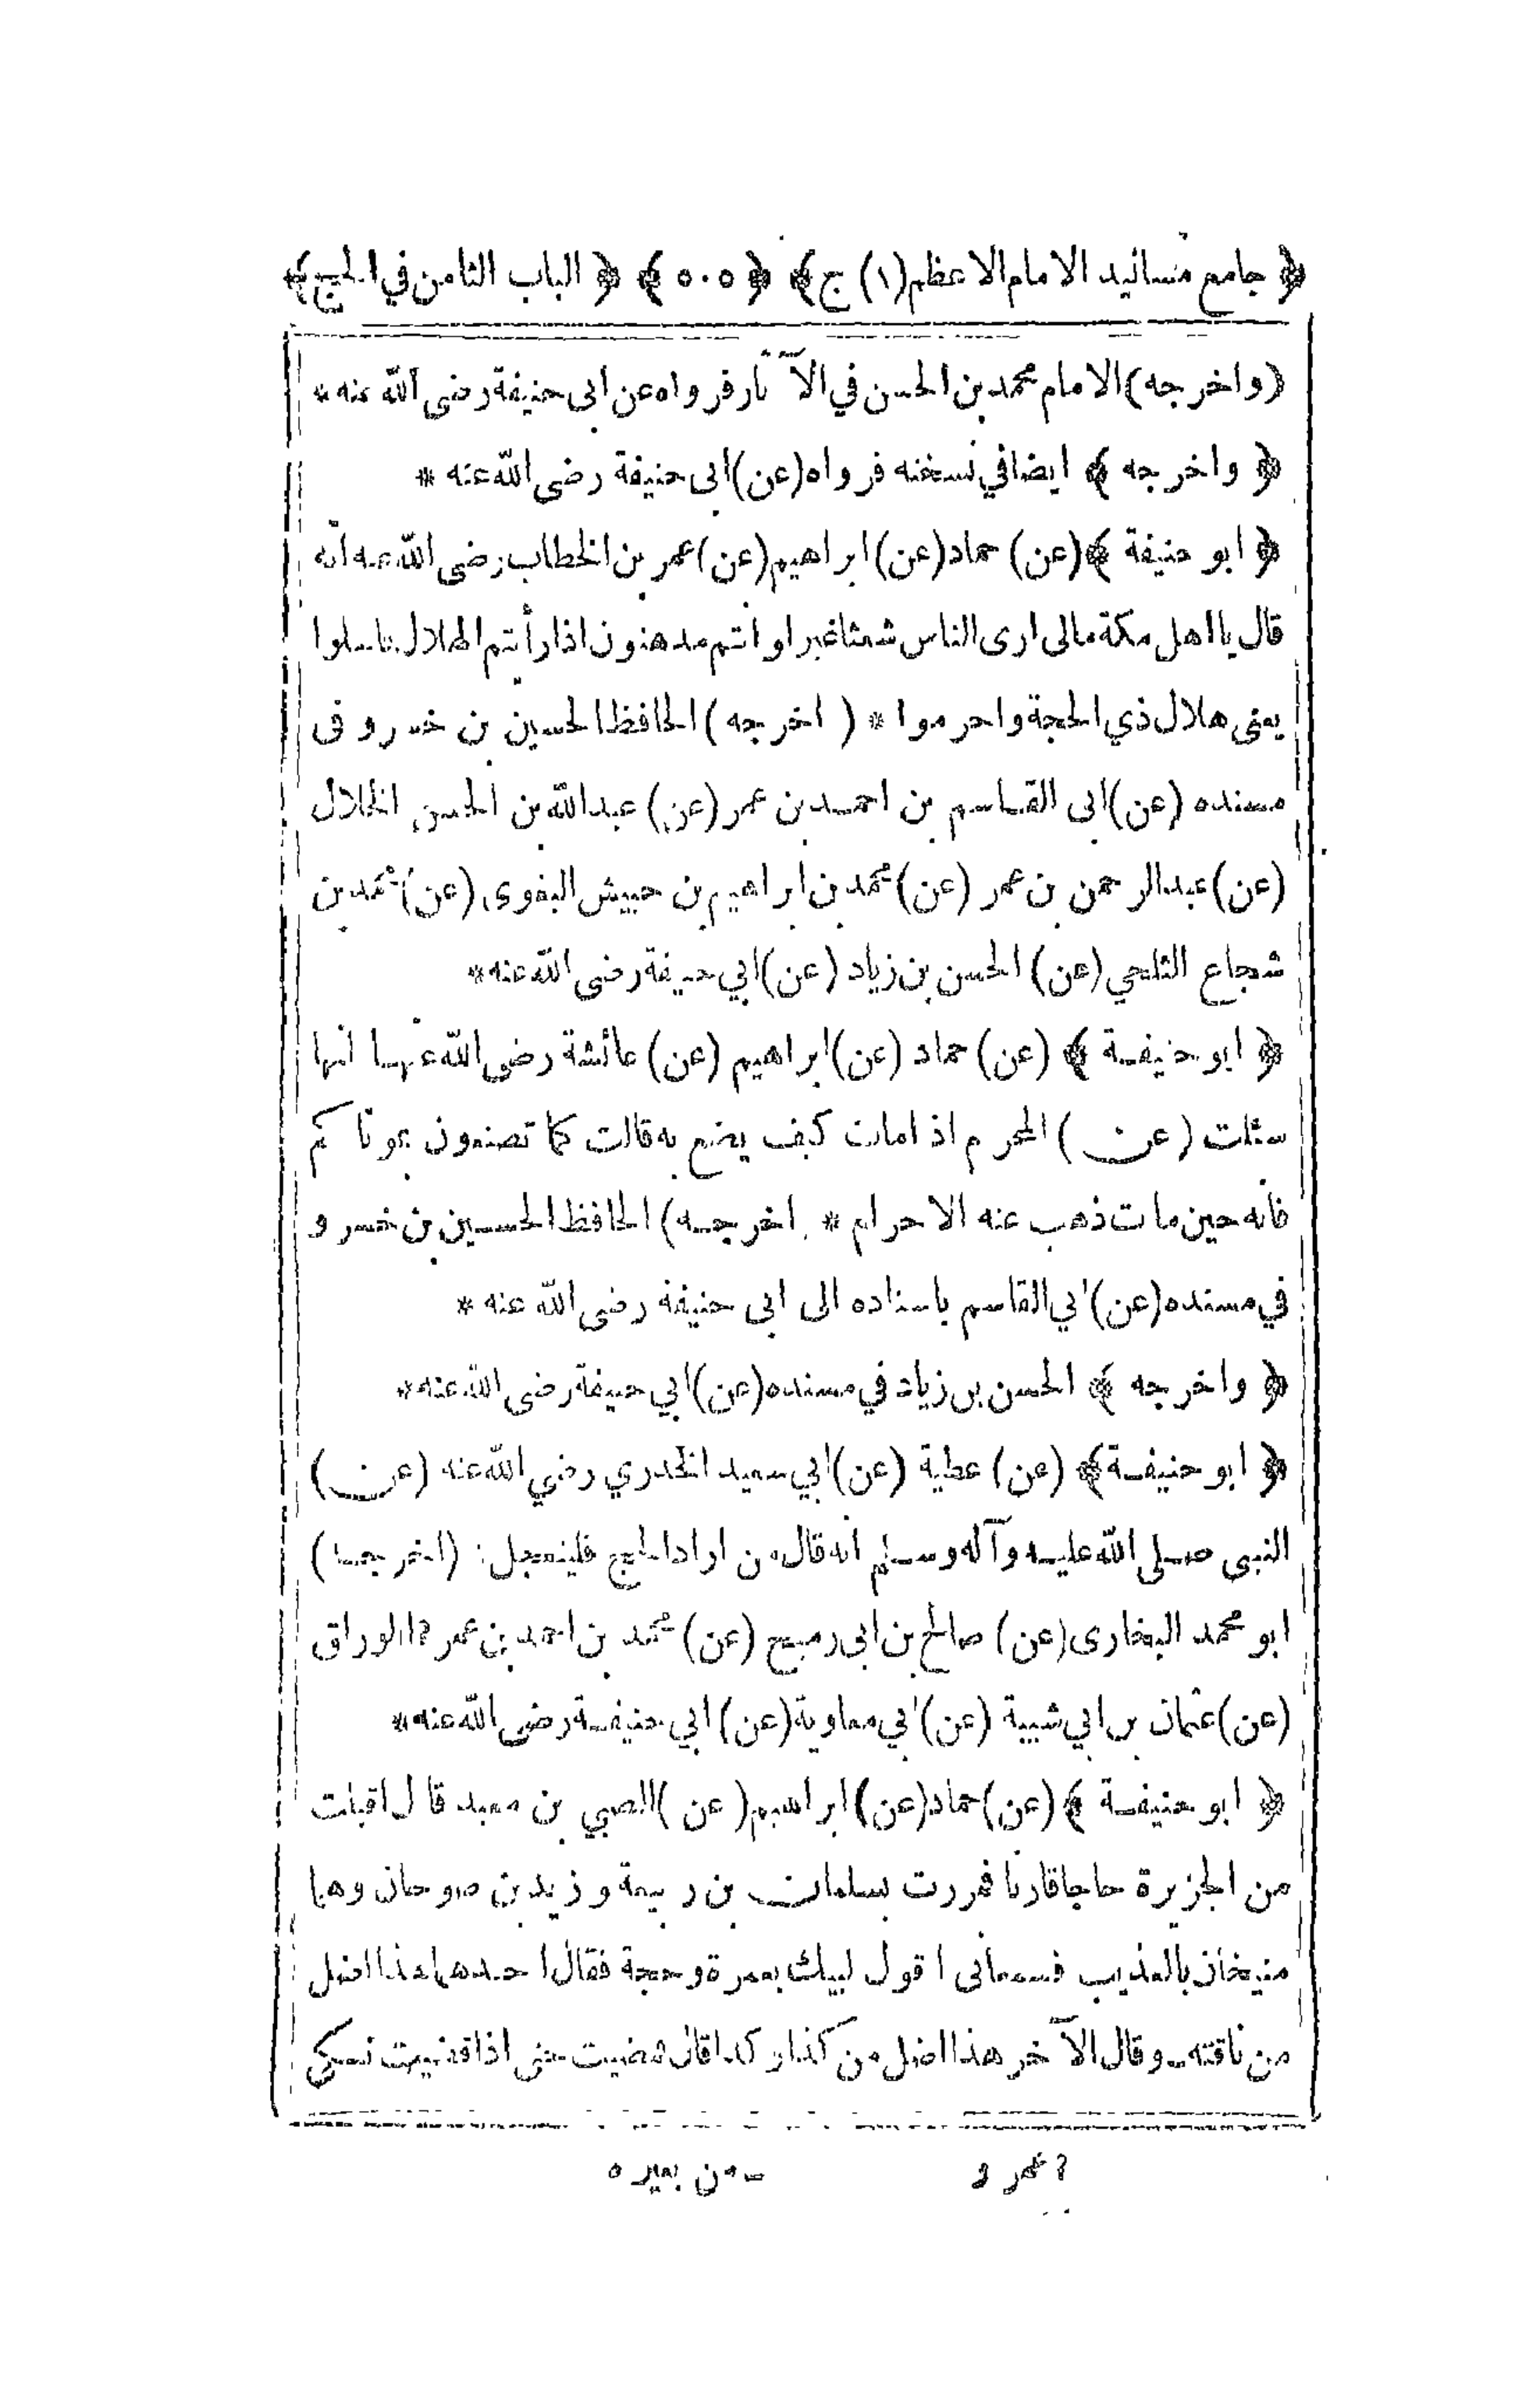 ﴿ جامع مسانيد الامام الاعظم (١) ج ﴾ ﴿ ٥٠٥ ﴾ ﴿ الباب الثامن في الحج ﴾
(واخرجه) الامام محمد بن الحسن في الآثار فرواه عن ابى حنيفة رضى الله عنه *
﴿ واخرجه ﴾ ايضا في نسخته فرواه (عن) ابى حنيفة رضى الله عنه *
﴿ ابو حنيفة ﴾ (عن) حماد (عن) ابراهيم (عن) عمر بن الخطاب رضى الله عنه انه
قال يا اهل مكة مالى ارى الناس شعثا غبرا وانتم مدهنون اذا رأيتم الهلال
يعنى هلال ذي الحجة واحرموا * (اخرجه) الحافظ الحسين بن خسرو فى
مسنده (عن) ابى القاسم بن احمد بن عمر (عن) عبد الله بن الحسن الخلال
(عن) عبد الرحمن بن عمر (عن) محمد بن ابراهيم بن حبيش البغوى (عن) محمد بن
شجاع الثلجي (عن) الحسن بن زياد (عن) ابي حنيفة رضى الله عنه *
﴿ ابو حنيفة ﴾ (عن) حماد (عن) ابراهيم (عن) عائشة رضى الله عنها انها
سئلت (عن) المحرم اذا مات كيف يصنع به قالت كما تصنعون بموتاكم
فانه حين مات ذهب عنه الاحرام * اخرجه) الحافظ الحسين بن خسرو
في مسنده (عن) ابي القاسم باسناده الى ابى حنيفة رضى الله عنه *
﴿ واخرجه ﴾ الحسن بن زياد في مسنده (عن) ابي حنيفة رضى الله عنه *
﴿ ابو حنيفة ﴾ (عن) عطية (عن) ابي سعيد الخدري رضي الله عنه (عن)
النبى صلى الله عليه وآله وسلم انه قال من اراد الحج فليتعجل * (اخرجه)
ابو محمد البخارى (عن) صالح بن ابى رميح (عن) محمد بن احمد بن عمر ؟ الوراق
(عن) عثمان بن ابي شيبة (عن) ابي معاوية (عن) ابي حنيفة رضى الله عنه *
﴿ ابو حنيفة ﴾ (عن) حماد (عن) ابراهيم (عن) الصبي بن معبد قال اقبلت
من الجزيرة حاجا قارنا فمررت بسلمان بن ربيعة وزيد بن صوحان وهما
منيخان بالعذيب فسمعانى اقول لبيك بعمرة وحجة فقال احدهما هذا اضل
من ناقته ـ وقال الآخر هذا اضل من كذا وكذا قال فمضيت حتى اذا قضيت نسكى
؟ عمرو ـ من بعيره